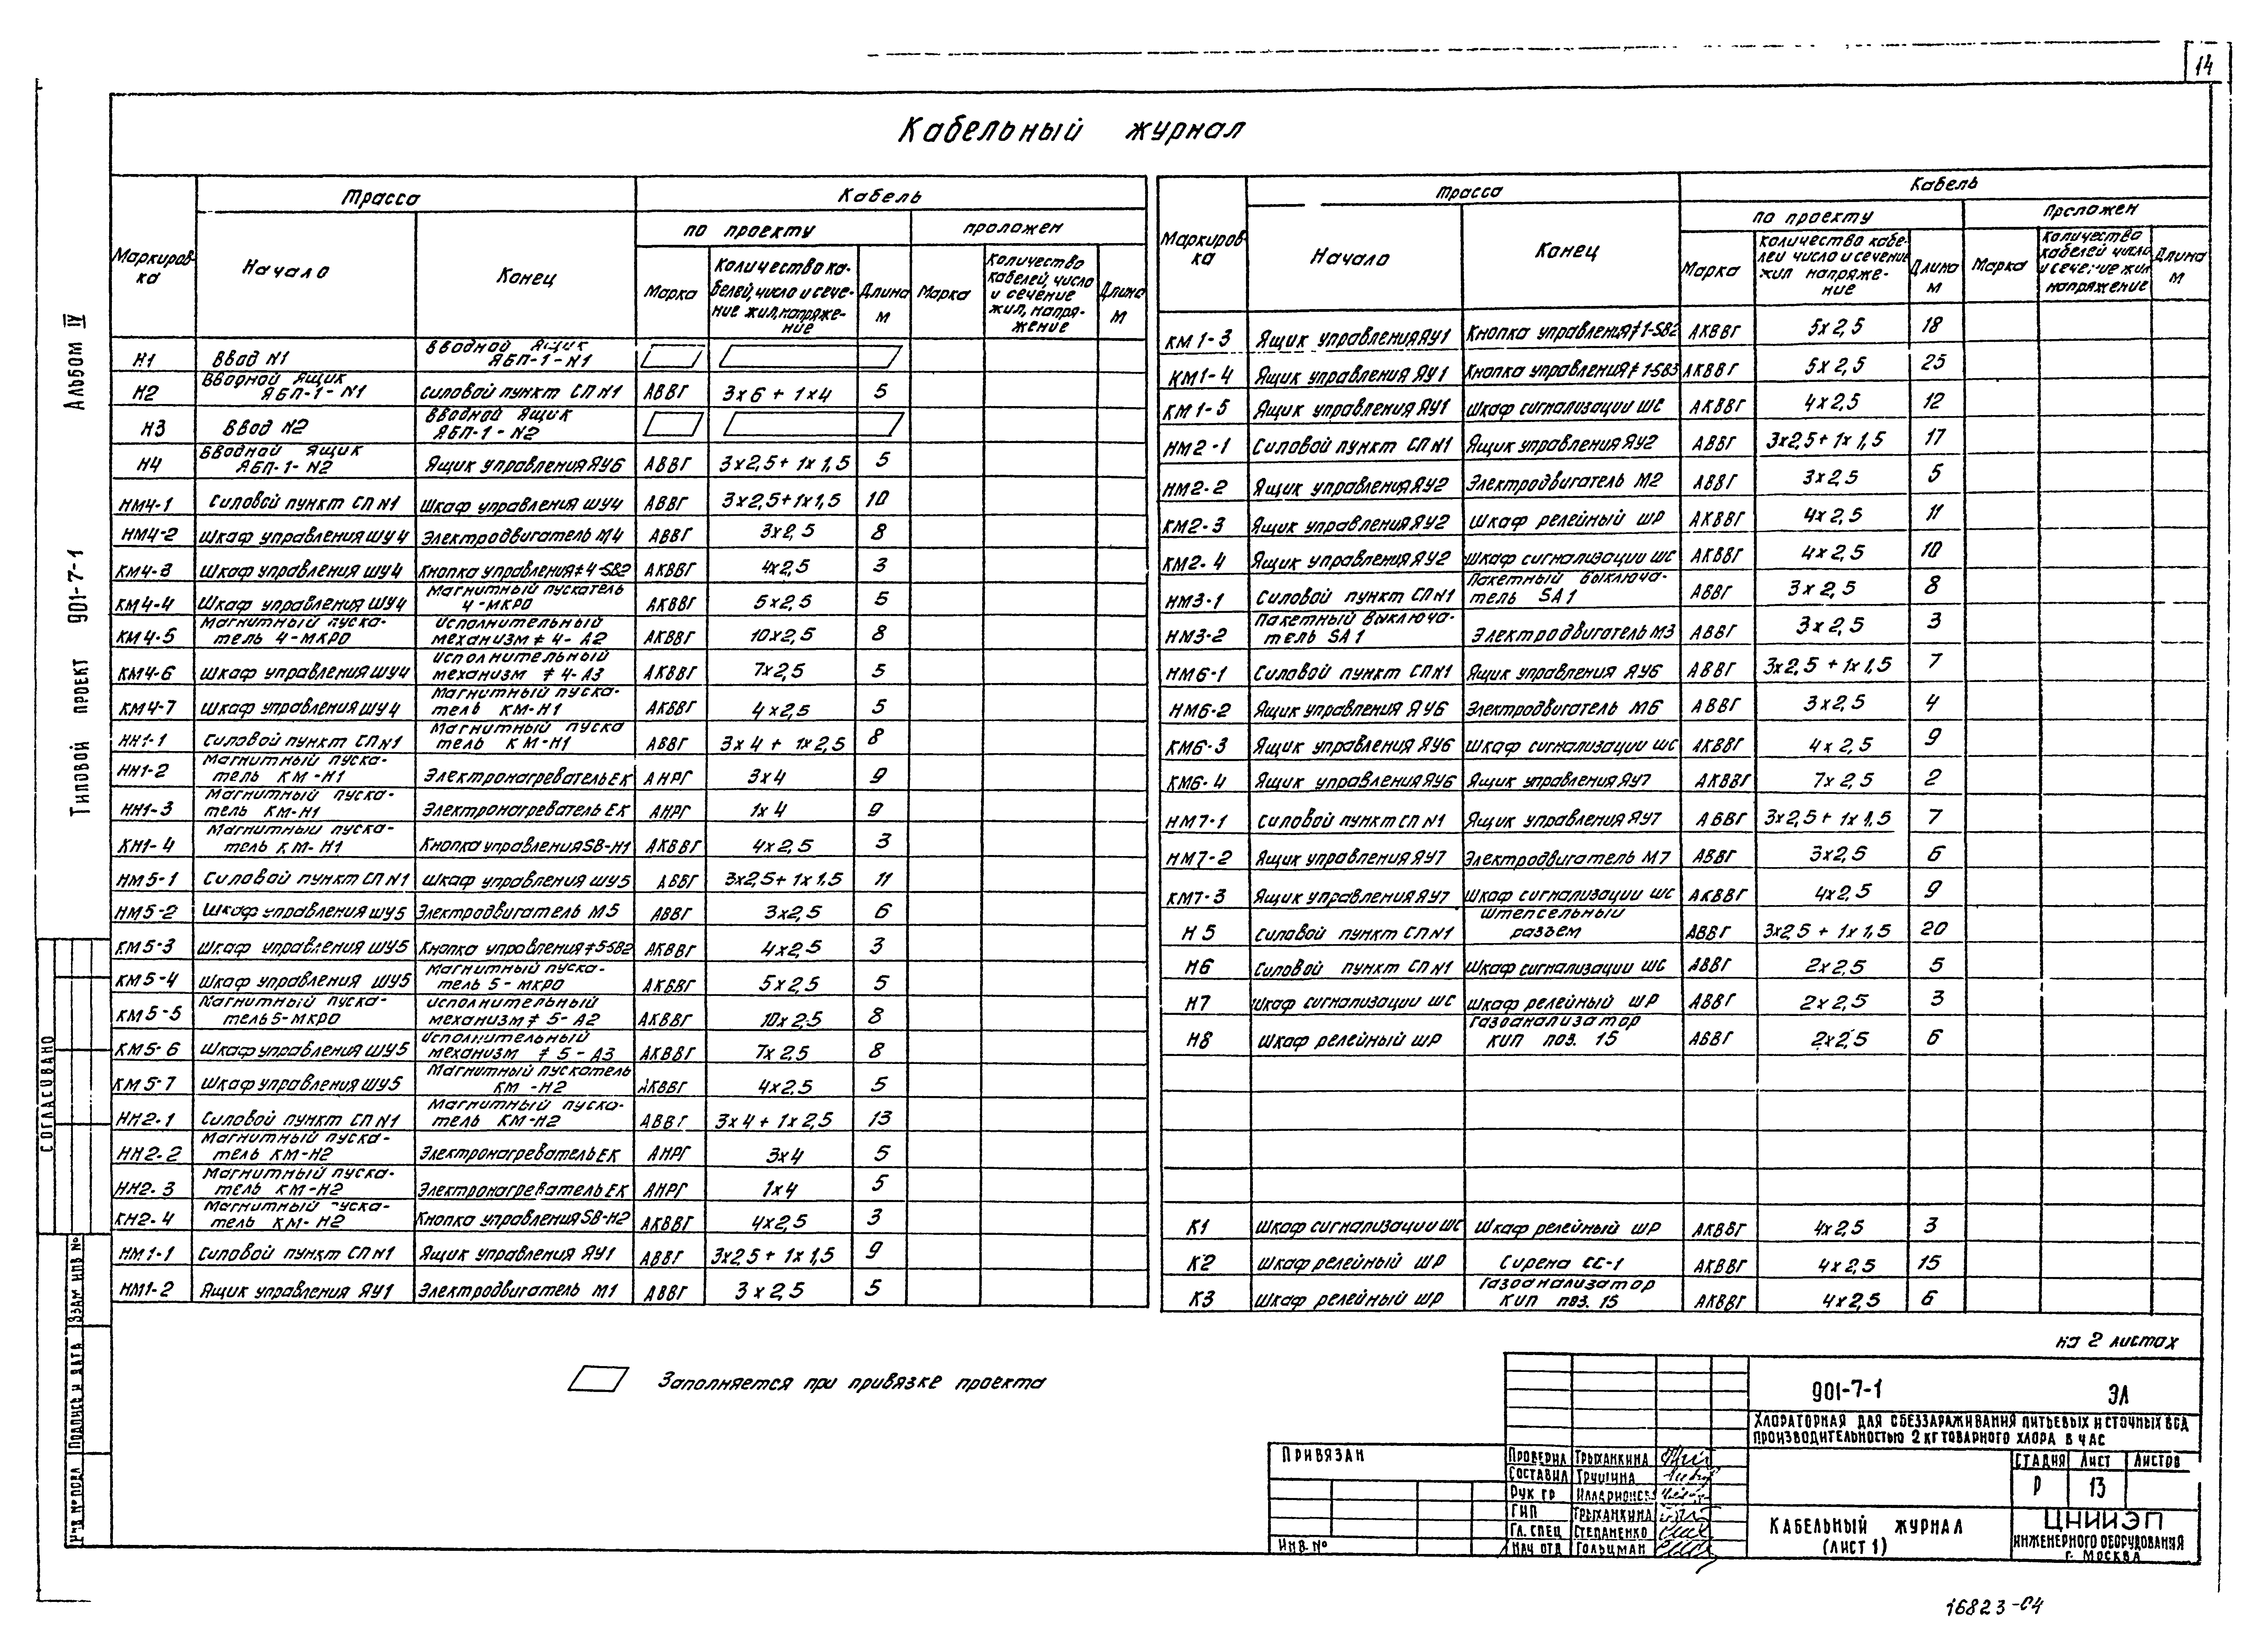 14
Кабельный журнал
Альбом IV
Типовой проект 901-7-1
Маркировка
Трасса
Кабель
Начало
Конец
по проекту
проложен
Марка
Количество кабелей, число и сечение жил, напряжение
Длина м
Марка
Количество кабелей, число и сечение жил, напряжение
Длина м
Н1 Ввод N1 Вводной ящик ЯБП-1-N1
Н2 Вводной ящик ЯБП-1-N1 Силовой пункт СП N1 АВВГ 3х6 + 1х4 5
Н3 Ввод N2 Вводной ящик ЯБП-1-N2
Н4 Вводной ящик ЯБП-1-N2 Ящик управления ЯУ6 АВВГ 3х2,5 + 1х1,5 5
НМ4-1 Силовой пункт СП N1 Шкаф управления ШУ4 АВВГ 3х2,5+1х1,5 10
НМ4-2 Шкаф управления ШУ4 Электродвигатель М4 АВВГ 3х2,5 8
КМ4-3 Шкаф управления ШУ4 Кнопка управления ≠4-SB2 АКВВГ 4х2,5 3
КМ4-4 Шкаф управления ШУ4 Магнитный пускатель 4-МКРО АКВВГ 5х2,5 5
КМ4-5 Магнитный пускатель 4-МКРО Исполнительный механизм ≠4-А2 АКВВГ 10х2,5 8
КМ4-6 Шкаф управления ШУ4 Исполнительный механизм ≠4-А3 АКВВГ 7х2,5 5
КМ4-7 Шкаф управления ШУ4 Магнитный пускатель КМ-Н1 АКВВГ 4х2,5 5
НН1-1 Силовой пункт СП N1 Магнитный пускатель КМ-Н1 АВВГ 3х4 + 1х2,5 8
НН1-2 Магнитный пускатель КМ-Н1 Электронагреватель ЕК АНРГ 3х4 9
НН1-3 Магнитный пускатель КМ-Н1 Электронагреватель ЕК АНРГ 1х4 9
КН1-4 Магнитный пускатель КМ-Н1 Кнопка управления SB-Н1 АКВВГ 4х2,5 3
НМ5-1 Силовой пункт СП N1 Шкаф управления ШУ5 АВВГ 3х2,5+1х1,5 11
НМ5-2 Шкаф управления ШУ5 Электродвигатель М5 АВВГ 3х2,5 6
КМ5-3 Шкаф управления ШУ5 Кнопка управления ≠5-SB2 АКВВГ 4х2,5 3
КМ5-4 Шкаф управления ШУ5 Магнитный пускатель 5-МКРО АКВВГ 5х2,5 5
КМ5-5 Магнитный пускатель 5-МКРО Исполнительный механизм ≠5-А2 АКВВГ 10х2,5 8
КМ5-6 Шкаф управления ШУ5 Исполнительный механизм ≠5-А3 АКВВГ 7х2,5 8
КМ5-7 Шкаф управления ШУ5 Магнитный пускатель КМ-Н2 АКВВГ 4х2,5 5
НН2-1 Силовой пункт СП N1 Магнитный пускатель КМ-Н2 АВВГ 3х4 + 1х2,5 13
НН2-2 Магнитный пускатель КМ-Н2 Электронагреватель ЕК АНРГ 3х4 5
НН2-3 Магнитный пускатель КМ-Н2 Электронагреватель ЕК АНРГ 1х4 5
КН2-4 Магнитный пускатель КМ-Н2 Кнопка управления SB-Н2 АКВВГ 4х2,5 3
НМ1-1 Силовой пункт СП N1 Ящик управления ЯУ1 АВВГ 3х2,5 + 1х1,5 9
НМ1-2 Ящик управления ЯУ1 Электродвигатель М1 АВВГ 3х2,5 5
Маркировка
Трасса
Кабель
Начало
Конец
по проекту
Проложен
Марка
Количество кабелей число и сечение жил напряжение
Длина м
Марка
Количество кабелей число и сечение жил напряжение
Длина м
КМ1-3 Ящик управления ЯУ1 Кнопка управления ≠1-SB2 АКВВГ 5х2,5 18
КМ1-4 Ящик управления ЯУ1 Кнопка управления ≠1-SB3 АКВВГ 5х2,5 25
КМ1-5 Ящик управления ЯУ1 Шкаф сигнализации ШС АКВВГ 4х2,5 12
НМ2-1 Силовой пункт СП N1 Ящик управления ЯУ2 АВВГ 3х2,5+1х1,5 17
НМ2-2 Ящик управления ЯУ2 Электродвигатель М2 АВВГ 3х2,5 5
КМ2-3 Ящик управления ЯУ2 Шкаф релейный ШР АКВВГ 4х2,5 11
КМ2-4 Ящик управления ЯУ2 Шкаф сигнализации ШС АКВВГ 4х2,5 10
НМ3-1 Силовой пункт СП N1 Пакетный выключатель SA1 АВВГ 3х2,5 8
НМ3-2 Пакетный выключатель SA1 Электродвигатель М3 АВВГ 3х2,5 3
НМ6-1 Силовой пункт СП N1 Ящик управления ЯУ6 АВВГ 3х2,5 + 1х1,5 7
НМ6-2 Ящик управления ЯУ6 Электродвигатель М6 АВВГ 3х2,5 4
КМ6-3 Ящик управления ЯУ6 Шкаф сигнализации ШС АКВВГ 4х2,5 9
КМ6-4 Ящик управления ЯУ6 Ящик управления ЯУ7 АКВВГ 7х2,5 2
НМ7-1 Силовой пункт СП N1 Ящик управления ЯУ7 АВВГ 3х2,5 + 1х1,5 7
НМ7-2 Ящик управления ЯУ7 Электродвигатель М7 АВВГ 3х2,5 6
КМ7-3 Ящик управления ЯУ7 Шкаф сигнализации ШС АКВВГ 4х2,5 9
Н5 Силовой пункт СП N1 Штепсельный разъем АВВГ 3х2,5 + 1х1,5 20
Н6 Силовой пункт СП N1 Шкаф сигнализации ШС АВВГ 2х2,5 5
Н7 Шкаф сигнализации ШС Шкаф релейный ШР АВВГ 2х2,5 3
Н8 Шкаф релейный ШР Газоанализатор КИП поз. 15 АВВГ 2х2,5 6
К1 Шкаф сигнализации ШС Шкаф релейный ШР АКВВГ 4х2,5 3
К2 Шкаф релейный ШР Сирена СС-1 АКВВГ 4х2,5 15
К3 Шкаф релейный ШР Газоанализатор КИП поз. 15 АКВВГ 4х2,5 6
Заполняется при привязке проекта
на 2 листах
901-7-1 ЭЛ
Хлораторная для обеззараживания питьевых и сточных вод
производительностью 2 кг товарного хлора в час
Стадия Лист Листов
Р 13
Кабельный журнал
(лист 1)
ЦНИИЭП
инженерного оборудования
г. Москва
Привязан
Инв. №
Проверил Трыханкина
Составил Трушина
Рук гр
ГИП Трыханкина
Гл. спец Степаненко
Нач отд Гольцман
Согласовано
Взам инв №
Подпись и дата
Инв № подл
16823-04